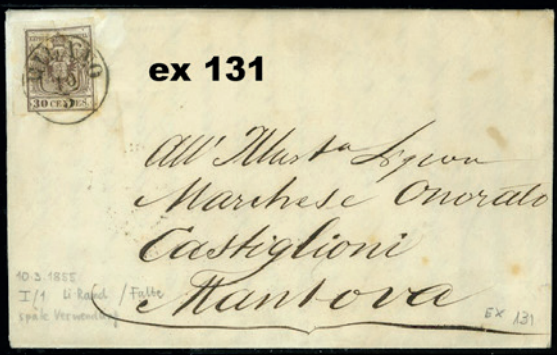 30 CENTES.
ex 131
All' Illust.a Signor
Marchese Onorato
Castiglioni
Mantova
10.3.1855
I/1 li Rand / Falte
späte Verwendung
EX 131